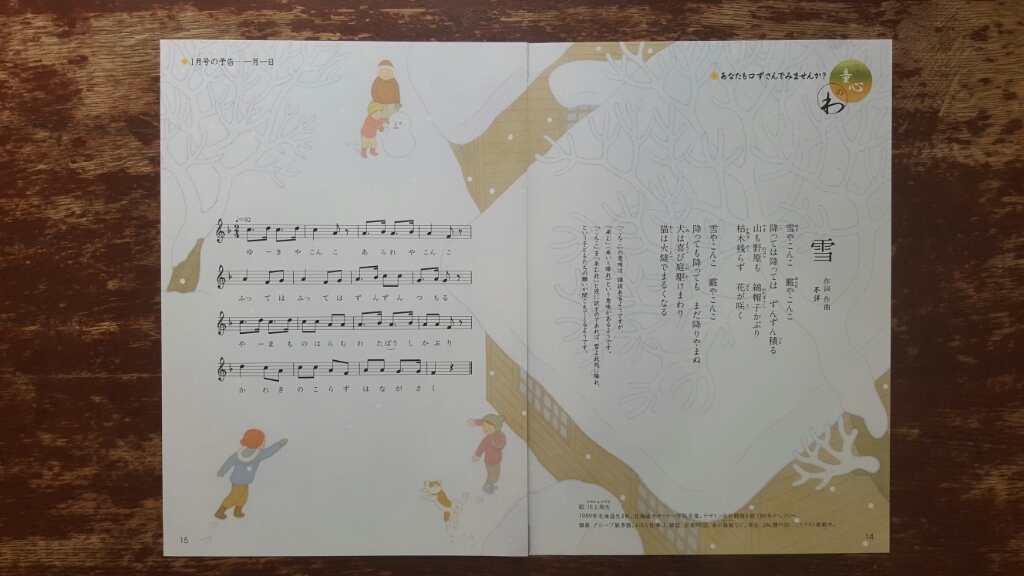 あなたも口ずさんでみませんか？
童心
わ
雪
作詞・作曲
不詳
雪やこんこ　霰やこんこ
降っては降っては　ずんずん積る
山も野原も　綿帽子かぶり
枯木残らず　花が咲く
雪やこんこ　霰やこんこ
降っても降っても　まだ降りやまぬ
犬は喜び庭駆けまわり
猫は火燵でまるくなる
「こんこ」の意味は、諸説あるようですが
「来む」（来い）「降れ」という意味があるようです。
という子どもたちの願いが聞こえてくるようです。
絵：川上和生
14
1月号の予告…一月一日
♩=92
ゆーきやこんこ　あられやこんこ
ふっては　ふっては　ずんずん　つもる
やーま　ものはらもわ　たぼうしかぶり
かれきのこらず　はながさく
15